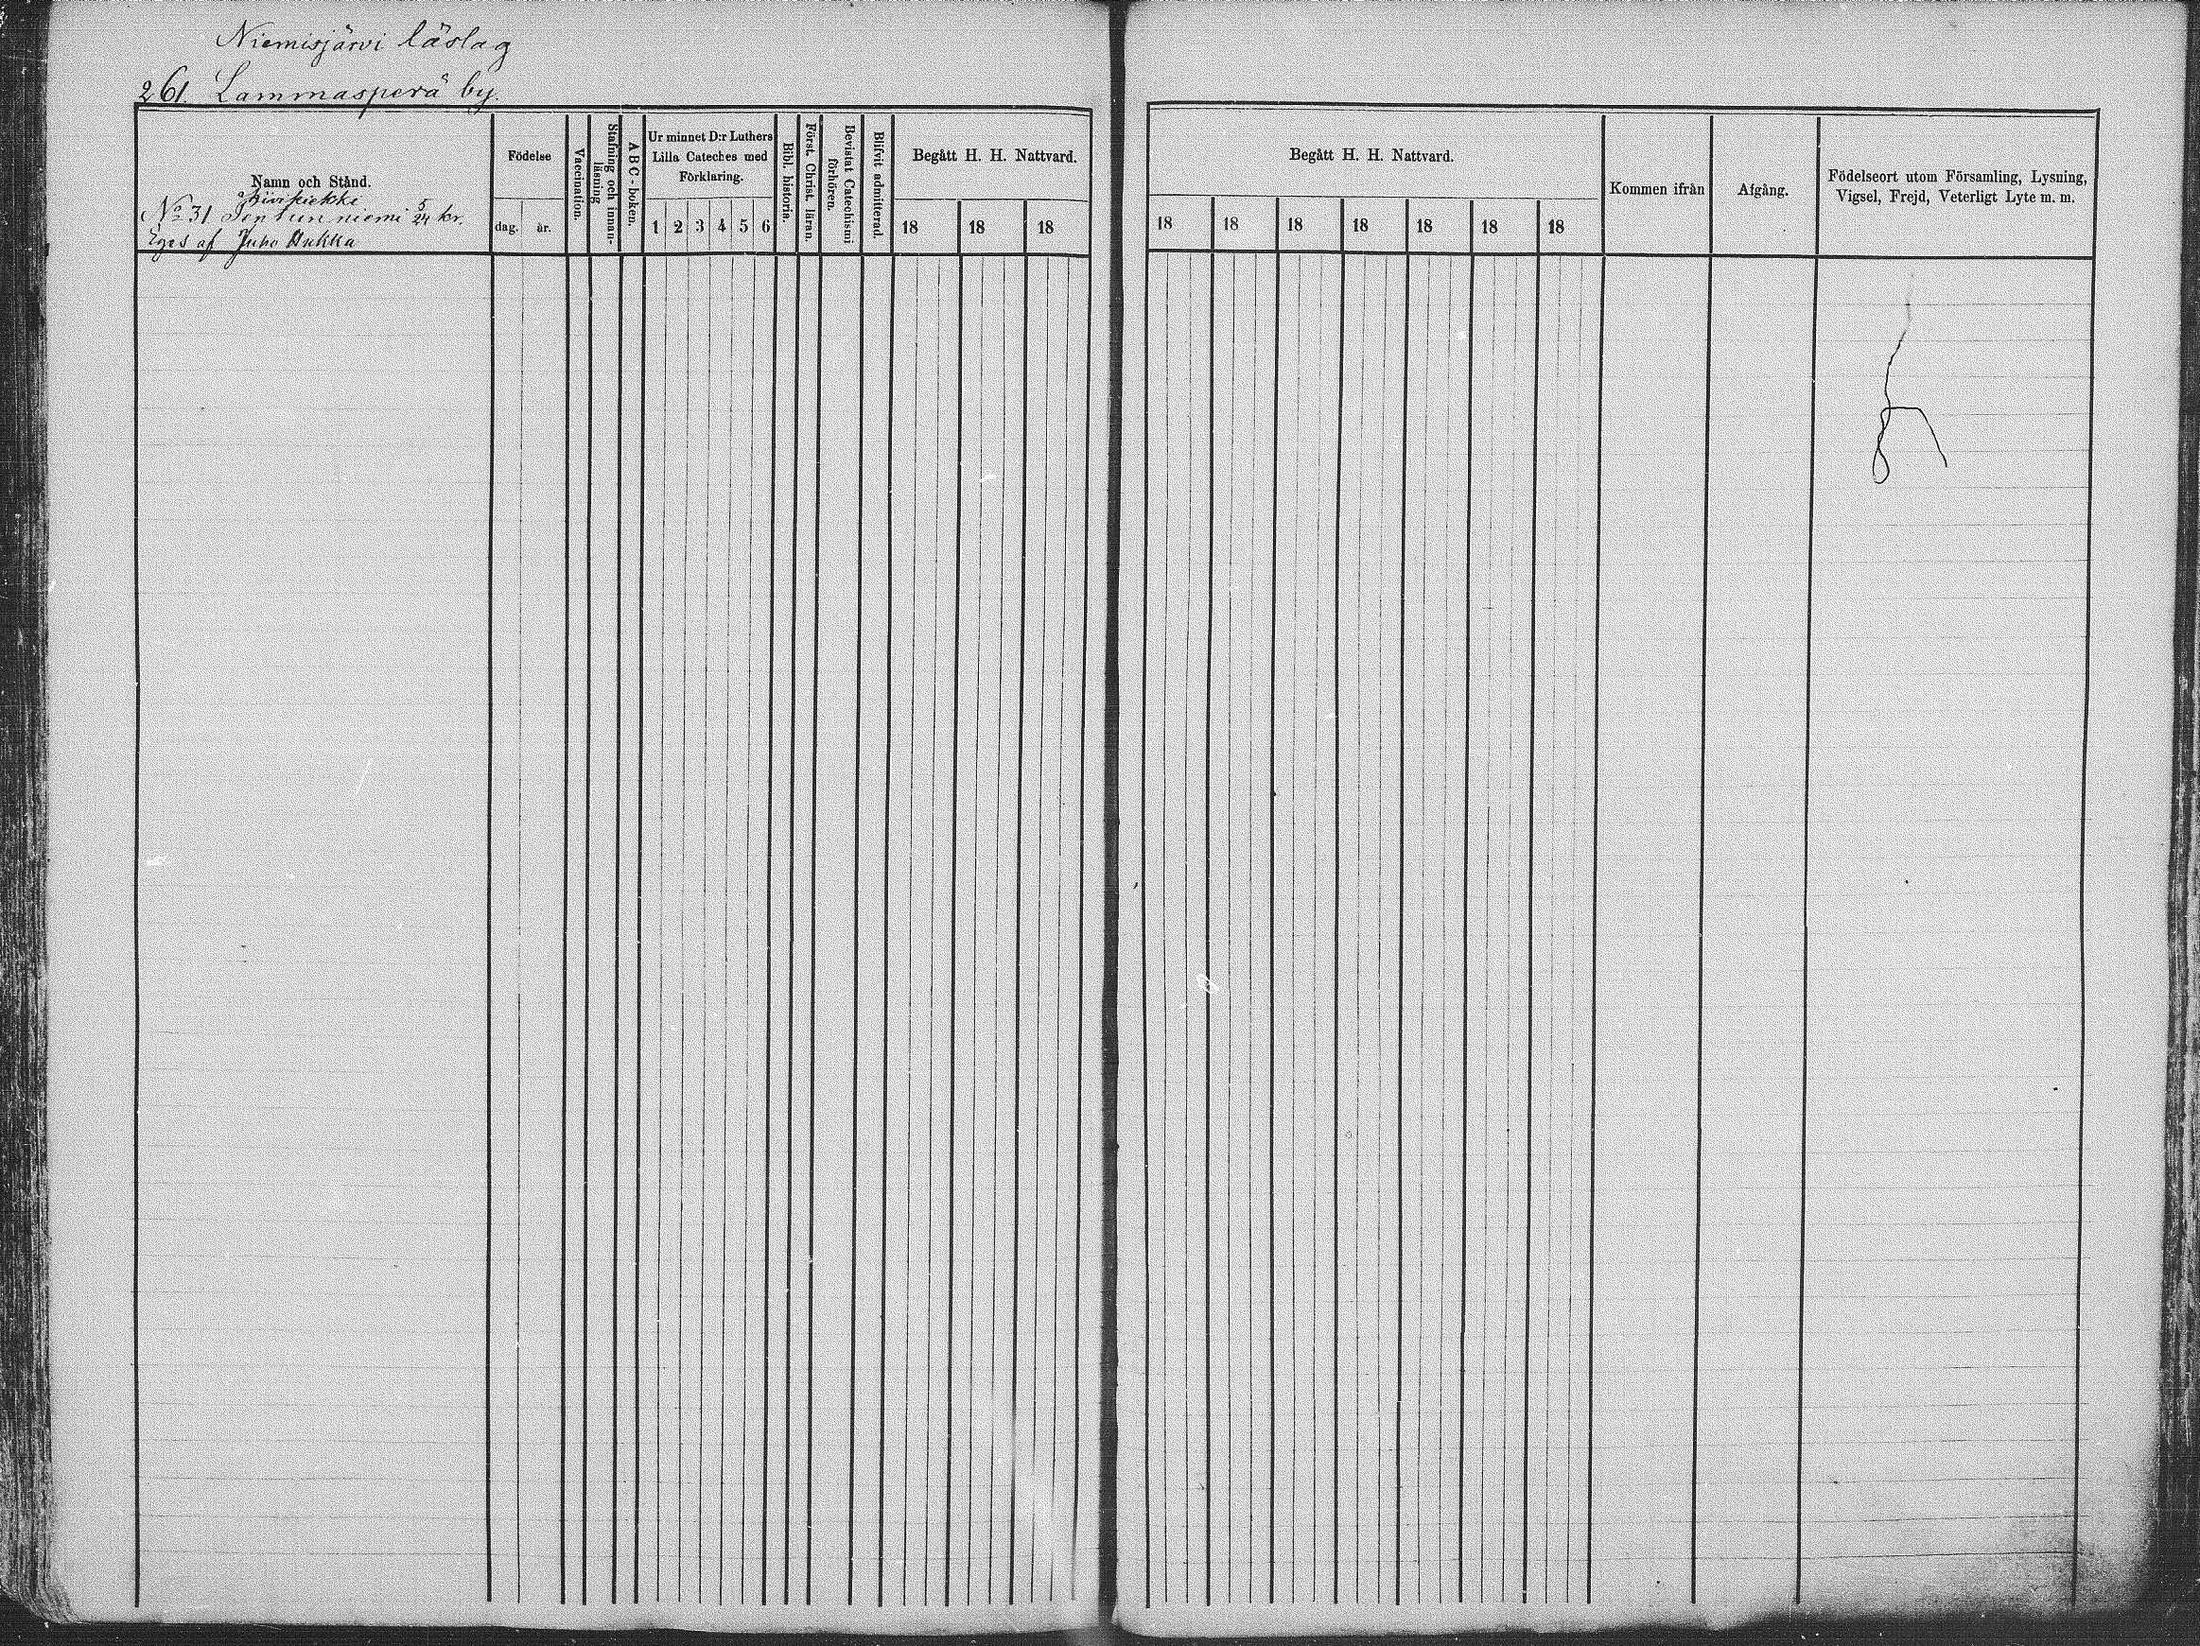 Niemisjärvi läslag
261. Lammasperä by.
Namn och Stånd.
No 31 niemi 5/24 kr.
Eges af Juho Hukka
Födelse
dag. år.
Vaccination.
Stafning och innan-
läsning
A B C - boken.
Ur minnet D:r Luthers
Lilla Cateches med
Förklaring.
1 2 3 4 5 6
Bibl. historia.
Först. Christ. läran.
Bevistat Catechismi
förhören.
Blifvit admitterad.
Begått H. H. Nattvard.
18 18 18
Begått H. H. Nattvard.
18 18 18 18 18 18 18
Kommen ifrån
Afgång.
Födelseort utom Församling, Lysning,
Vigsel, Frejd, Veterligt Lyte m. m.